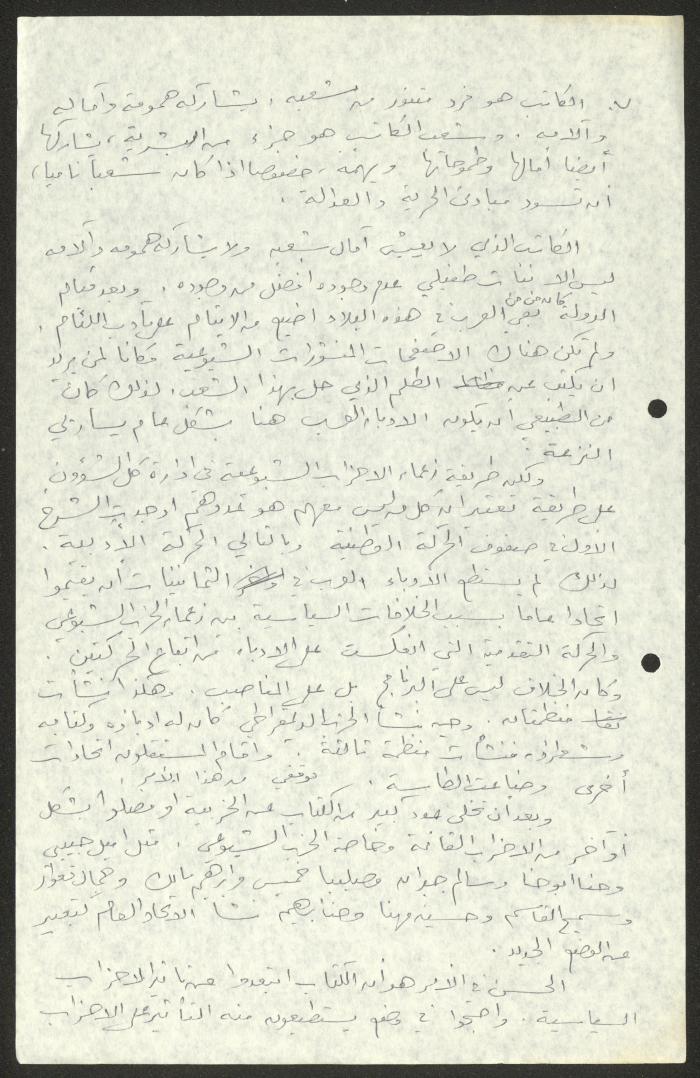 ٧. الكاتب هو فرد متنور من شعبه ، يشاركه همومه وآماله
وآلامه . وشعب الكاتب هو جزء من البشرية ، يشاركها
أيضا آمالها وطموحاتها ويهمه ، خصوصا اذا كان شعبا ناميا ،
أن تسود مبادئ الحرية والعدالة .
الكاتب الذي لا يعيش آمال شعبه ولا يشاركه همومه وآلامه
ليس الا نبات طفيلي عدم وجوده افضل من وجوده . وبعد قيام
الدولة كان من بقي من العرب في هذه البلاد اضيع من الايتام على مآدب اللئام .
ولم تكن هناك الا صفحات المنشورات الشيوعية مكانا لمن يريد
ان يكتب عن الظلم الذي حل بهذا الشعب . لذلك كان
من الطبيعي أن يكون الادباء العرب هنا بشكل عام يساريي
النزعة .
ولكن طريقة زعماء الاحزاب الشيوعية في ادارة كل الشؤون
على طريقة تعتبر أن كل من ليس معهم هو عدوهم اوجدت الشرخ
الاول في صفوف الحركة الوطنية وبالتالي الحركة الأدبية .
لذلك لم يستطع الادباء العرب في الثمانينات أن يقيموا
اتحادا عاما بسبب الخلافات السياسية بين زعماء الحزب الشيوعي
والحركة التقدمية التي انعكست على الادباء من اتباع الحركتين .
وكان الخلاف ليس على البرنامج بل على المناصب . وهكذا نشأت
منظمتان . وحين نشأ الحزب الديمقراطي كان له ادباؤه وكتابه
وشعراؤه فنشأت منظمة ثالثة . واقام المستقلون اتحادات
أخرى وضاعت الطاسة . موقفي من هذا الأمر .
وبعد ان تخلى عدد كبير من الكتاب عن الحزبية او فصلوا بشكل
أو آخر من الاحزاب القائمة وخاصة الحزب الشيوعي ، مثل اميل حبيبي
وحنا ابو حنا وسالم جبران وصليبا خميس وابراهيم مالك وجمال قعوار
وسميح القاسم وحسين مهنا وحنا ابراهيم نشأ الاتحاد العام كتعبير
عن الوضع الجديد .
الحسن في الأمر هو أن الكتاب ابتعدوا عن تأثير الاحزاب
السياسية . واصبحوا في وضع يستطيعون منه التأثير على الاحزاب